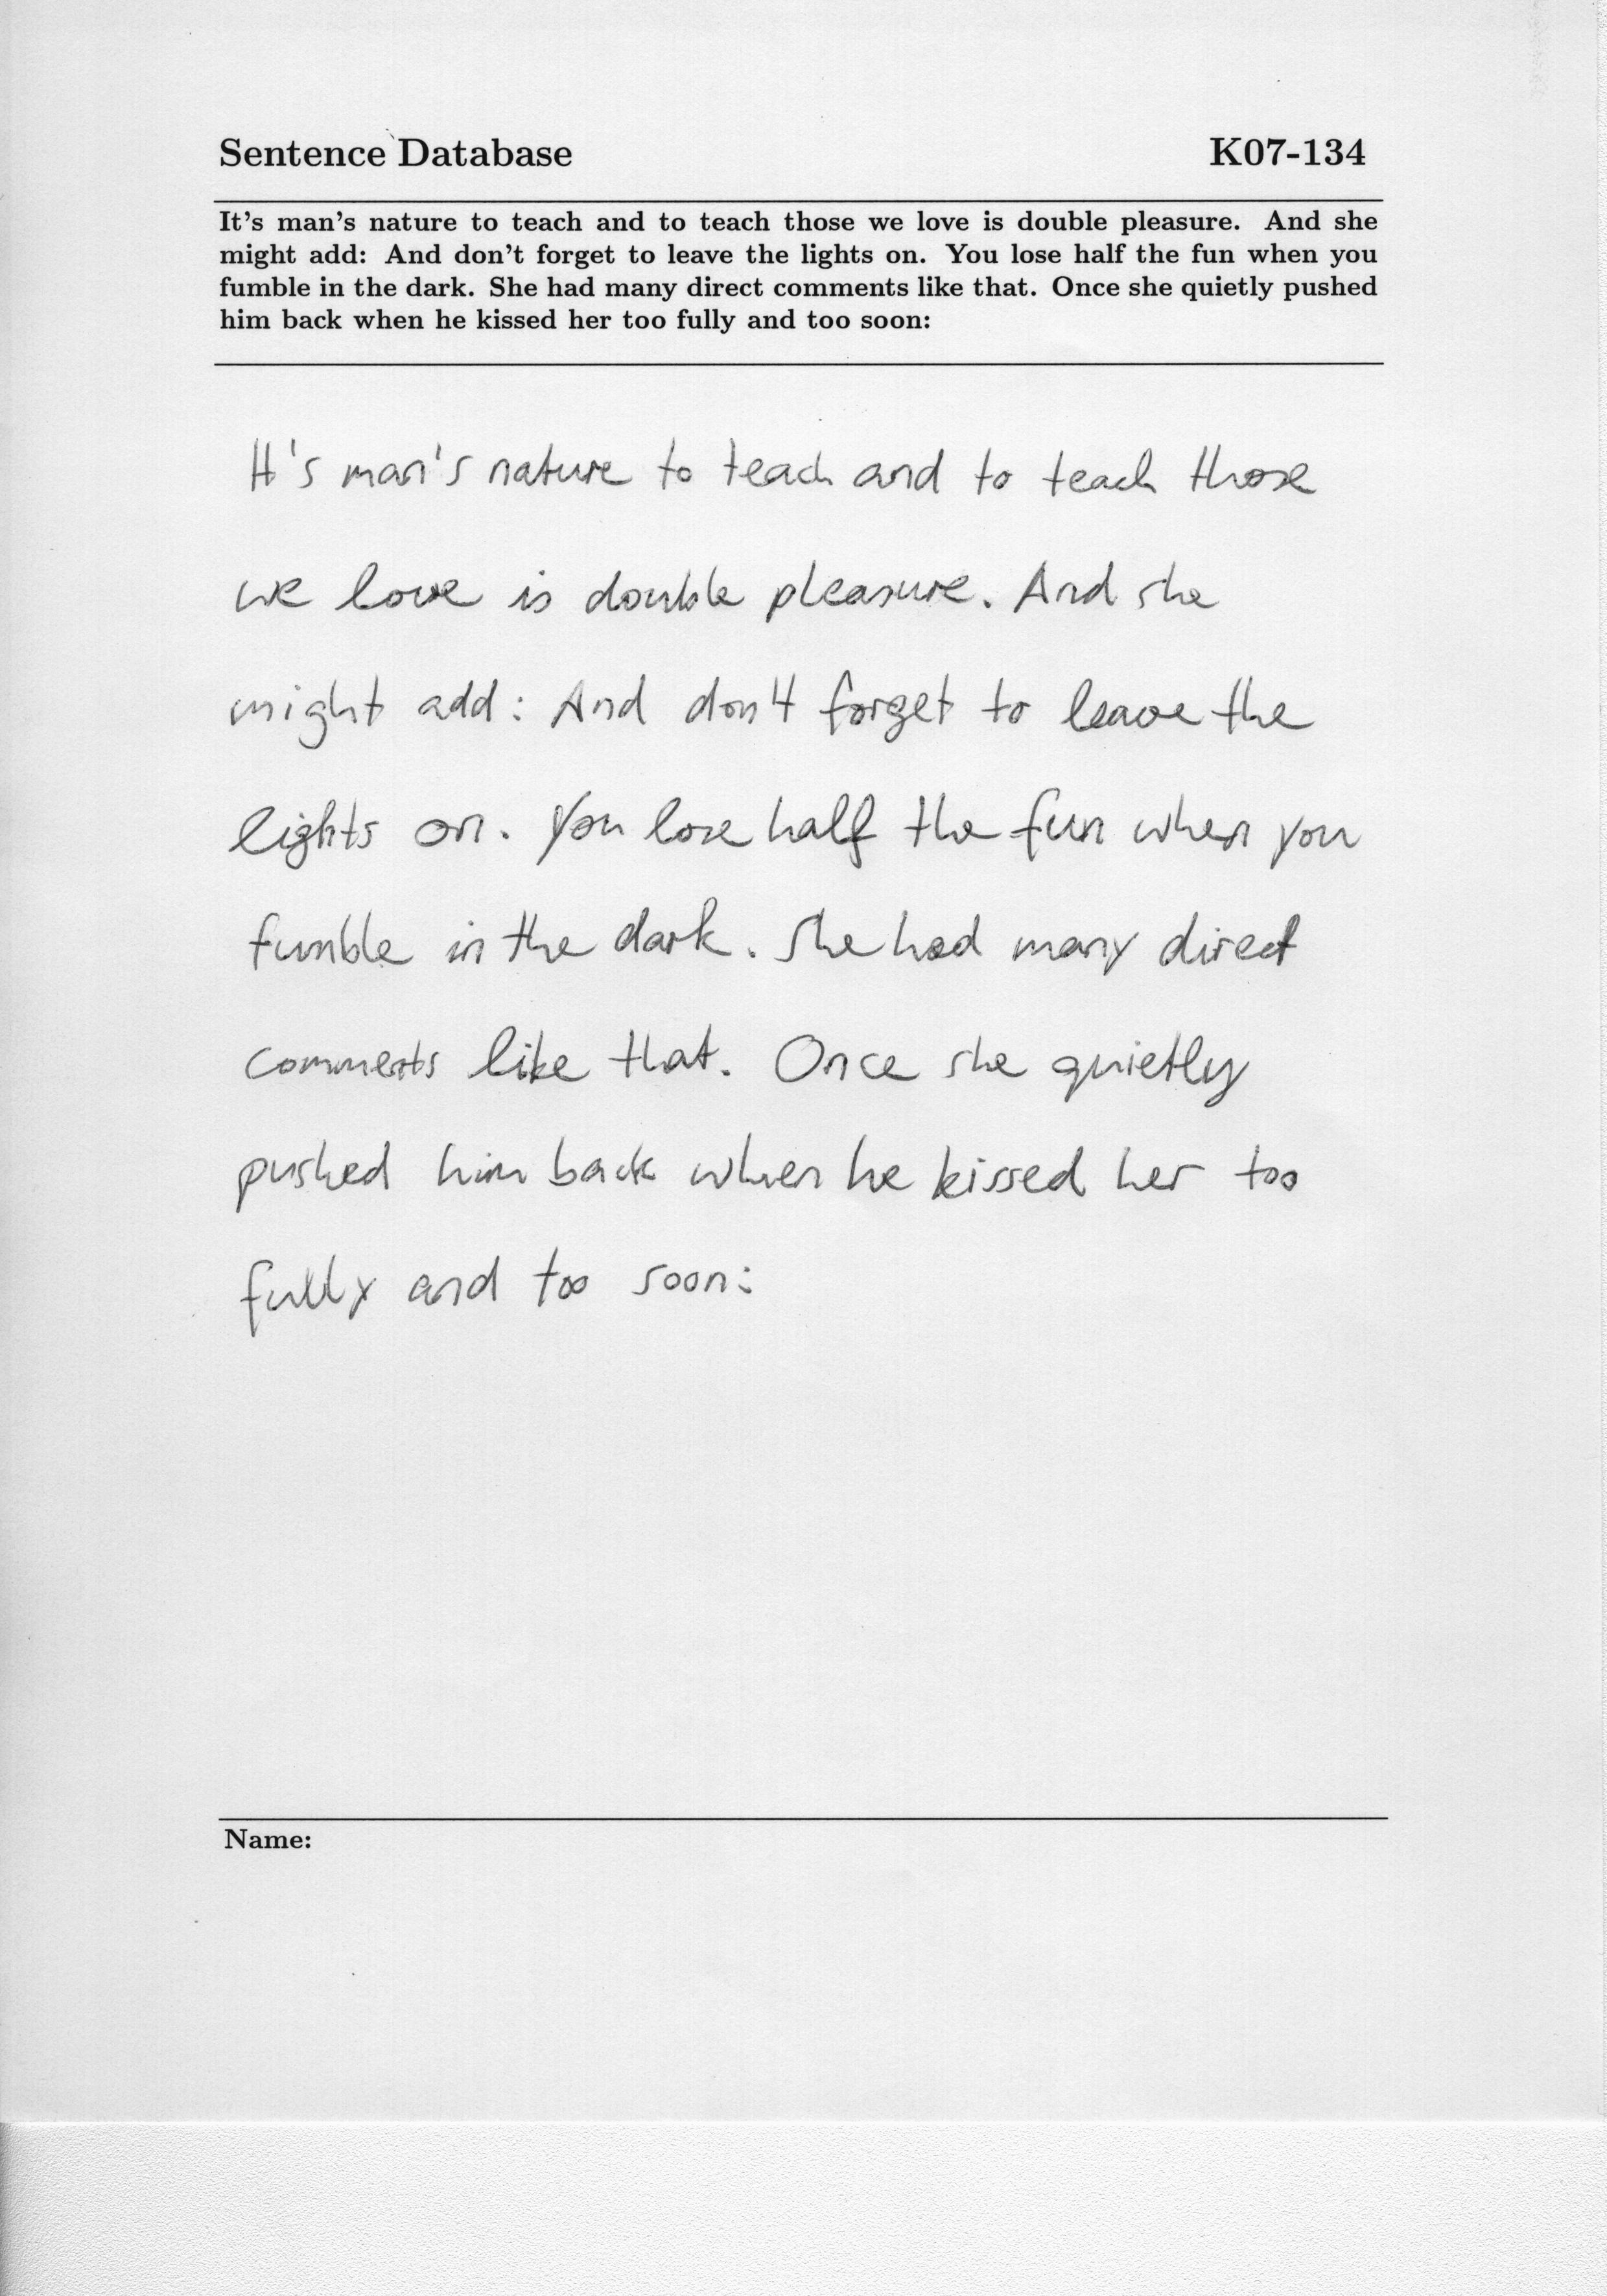 Sentence Database K07-134
It's man's nature to teach and to teach those we love is double pleasure. And she
might add: And don't forget to leave the lights on. You lose half the fun when you
fumble in the dark. She had many direct comments like that. Once she quietly pushed
him back when he kissed her too fully and too soon:
It's man's nature to teach and to teach those
we love is double pleasure. And she
might add: And don't forget to leave the
lights on. You lose half the fun when you
fumble in the dark. She had many direct
comments like that. Once she quietly
pushed him back when he kissed her too
fully and too soon:
Name: